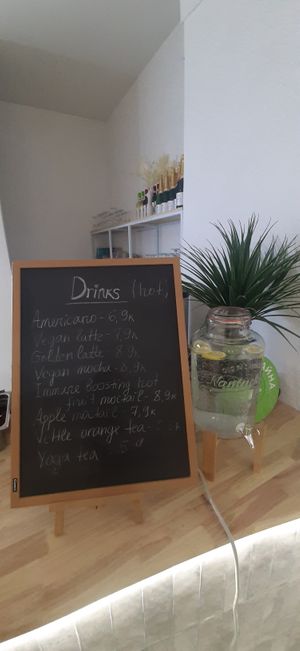 Drinks (hot)
Americano - 6,9k
Vegan latte - 7,9k
Golden latte 8.9k
Vegan mocha - 8,9k
Immune boosting hot
fruit moctail - 8,9k
Apple moctail - 7,9k
orange tea -
Yoga tea